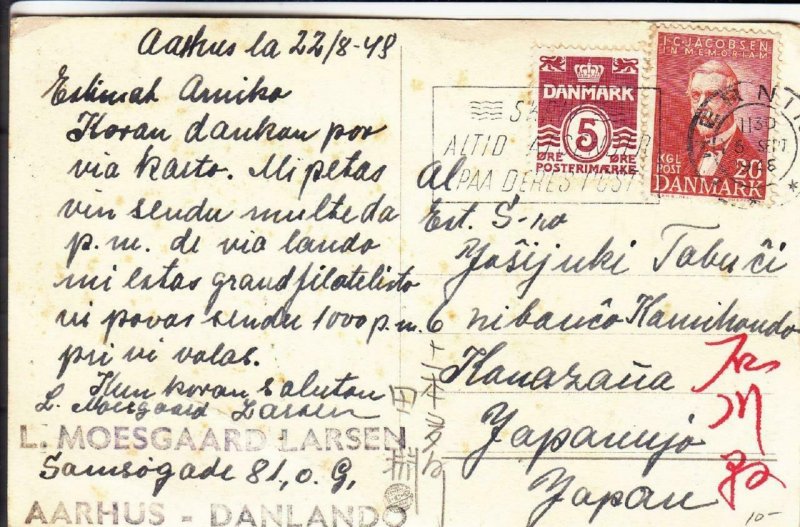 Aarhus la 22/8-48
Estimat Amiko
Koran dankon por
via karto. Mi petas
vin sendu multe da
p.m. de via lando
mi estas grand filatelisto
vi povas sendu 1000 p.m.
pri vi volas.
Kun koran saluton
L. Moesgaard Larsen
L. MOESGAARD LARSEN
Samsøgade 81, o. G,
AARHUS - DANLANDO
DANMARK
5
ØRE ØRE
POSTFRIMÆRKE
I·C·JACOBSEN
IN MEMORIAM
KGL
POST
20
DANMARK
ALTID
PAA DERES POST
1130
Al
Est. S-ro
Jošijuki Tabuĉi
6 nibanĉo Kamihondo
Kanazaŭa
Japanujo
Japan
10-